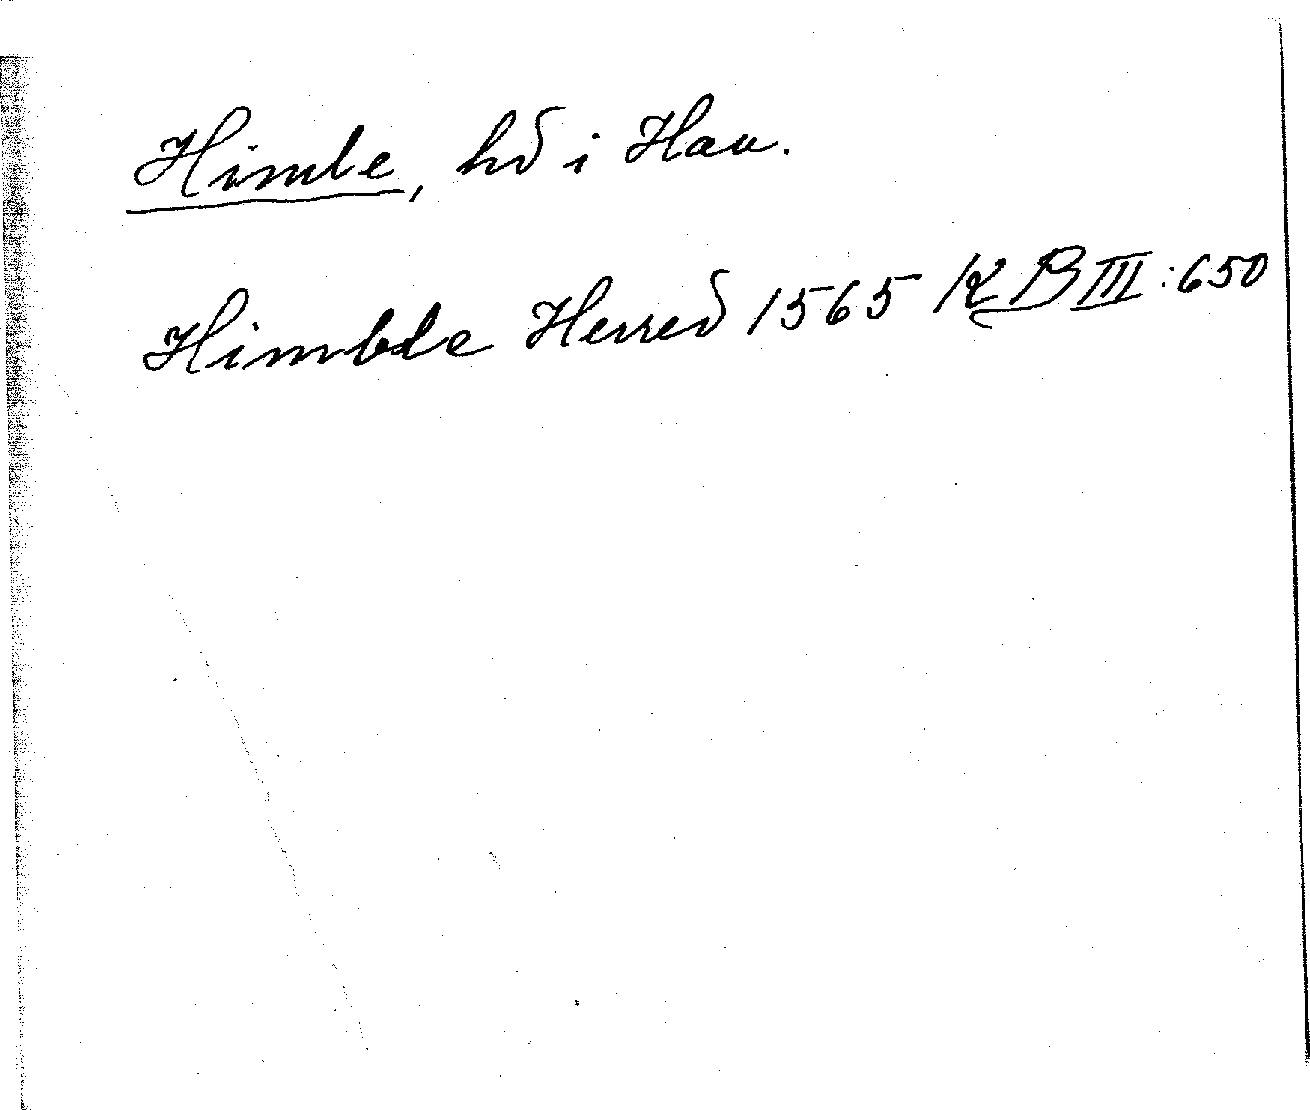 Himle, hd i Hall.
Himble Herred 1565 KB III:650